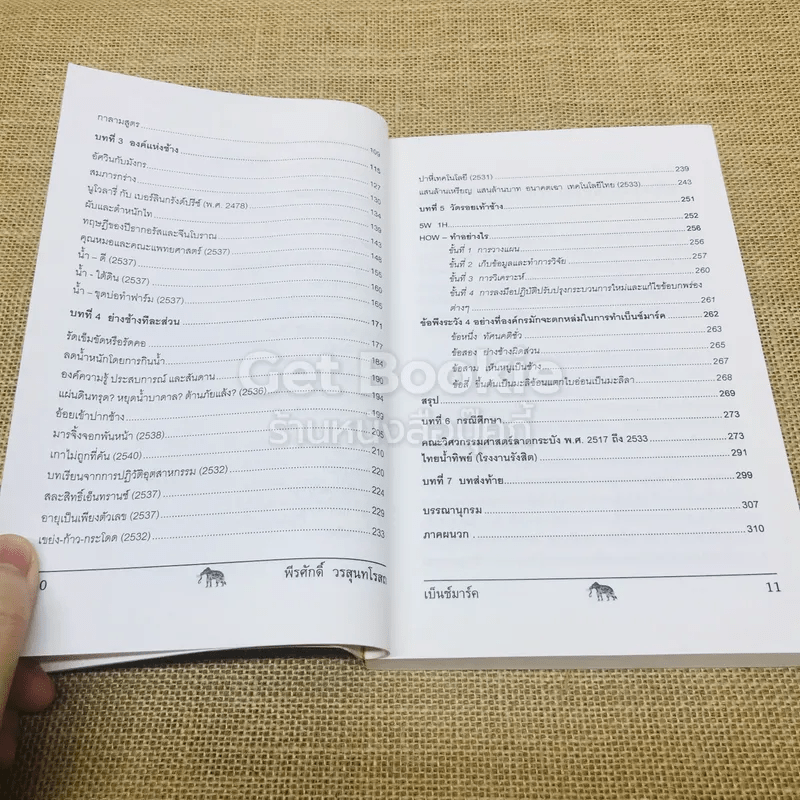 กาลามสูตร 109
บทที่ 3 องค์แห่งช้าง 116
อัศวินกับมังกร 127
สมภารกร่าง 130
นูโวลารี่ กับ เบอร์ลินกรังค์ปรีซ์ (พ.ศ. 2478) 134
ผับและตำหนักไท 139
ทฤษฎีของปิธากอรัสและจีนโบราณ 143
คุณหมอและคณะแพทยศาสตร์ (2537) 148
น้ำ – ดี (2537) 155
น้ำ - ใต้ดิน (2537) 160
น้ำ – ขุดบ่อทำฟาร์ม (2537) 165
บทที่ 4 ย่างช้างทีละส่วน 171
รัดเข็มขัดหรือรัดคอ 177
ลดน้ำหนักโดยการกินน้ำ 184
องค์ความรู้ ประสบการณ์ และสันดาน 190
แผ่นดินทรุด? หยุดน้ำบาดาล? ต้านภัยแล้ง? (2536) 194
อ้อยเข้าปากช้าง 199
มารจิ้งจอกพันหน้า (2538) 205
เกาไม่ถูกที่คัน (2540) 210
บทเรียนจากการปฏิวัติอุตสาหกรรม (2532) 220
สละสิทธิ์เอ็นทรานซ์ (2537) 224
อายุเป็นเพียงตัวเลข (2537) 229
เขย่ง-ก้าว-กระโดด (2532) 233
0 พีรศักดิ์ วรสุนทโรสถ
ปาหี่เทคโนโลยี (2531) 239
แสนล้านเหรียญ แสนล้านบาท อนาคตเฉา เทคโนโลยีไทย (2533) 243
บทที่ 5 วัดรอยเท้าช้าง 251
5W 1H 252
HOW – ทำอย่างไร 256
ขั้นที่ 1 การวางแผน 256
ขั้นที่ 2 เก็บข้อมูลและทำการวิจัย 257
ขั้นที่ 3 การวิเคราะห์ 260
ขั้นที่ 4 การลงมือปฏิบัติปรับปรุงกระบวนการใหม่และแก้ไขข้อบกพร่อง
ต่างๆ 261
ข้อพึงระวัง 4 อย่างที่องค์กรมักจะตกหล่มในการทำเบ็นช์มาร์ค 262
ข้อหนึ่ง ทัศนคติชัว 263
ข้อสอง ย่างช้างผิดส่วน 265
ข้อสาม เห็นหนูเป็นช้าง 267
ข้อสี่ ขึ้นต้นเป็นมะลิซ้อนแตกใบอ่อนเป็นมะลิลา 268
สรุป 269
บทที่ 6 กรณีศึกษา 273
คณะวิศวกรรมศาสตร์ลาดกระบัง พ.ศ. 2517 ถึง 2533 273
ไทยน้ำทิพย์ (โรงงานรังสิต) 291
บทที่ 7 บทส่งท้าย 299
บรรณานุกรม 307
ภาคผนวก 310
เบ็นช์มาร์ค 11
Get Bookie
ร้านหนังสือเก็ตบุ๊คกี้